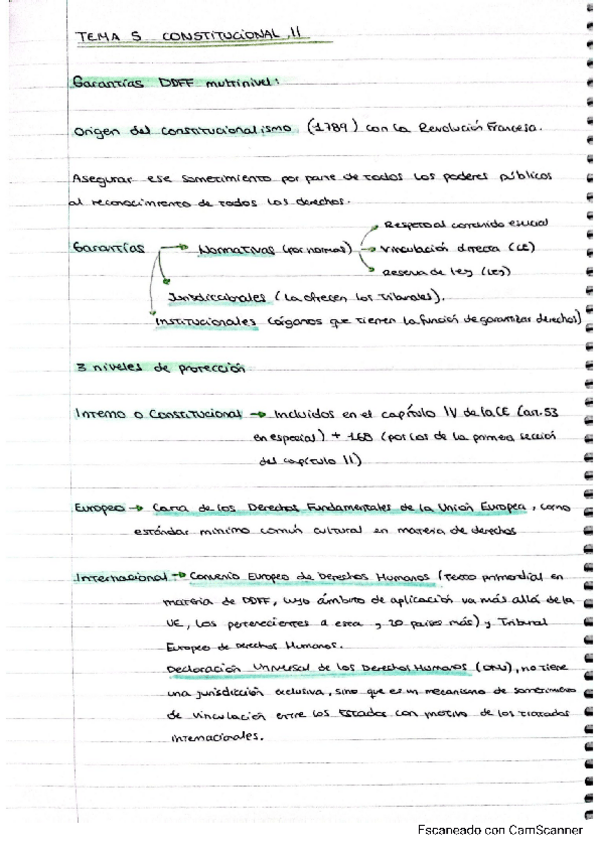 TEMA 5 CONSTITUCIONAL II
Garantías DDFF multinivel:
Origen del constitucionalismo (1789) con la Revolución Francesa.
Asegurar ese sometimiento por parte de todos los poderes públicos
al reconocimiento de todos los derechos.
Garantías → Normativas (por normas) → Respeto al contenido esencial
→ Vinculación directa (CE)
→ Reserva de ley (Ley)
Jurisdiccionales (la ofrecen los Tribunales).
Institucionales (órganos que tienen la función de garantizar derechos)
3 niveles de protección
Interno o Constitucional → Incluidos en el capítulo IV de la CE (art. 53
en especial) + 168 (por los de la primera sección
del capítulo II)
Europeo → Carta de los Derechos Fundamentales de la Unión Europea, como
estándar mínimo común cultural en materia de derechos
Internacional → Convenio Europeo de Derechos Humanos (Texto primordial en
materia de DDFF, cuyo ámbito de aplicación va más allá de la
UE, los pertenecientes a esta y 20 países más) y Tribunal
Europeo de Derechos Humanos.
Declaración Universal de los Derechos Humanos (ONU), no tiene
una jurisdicción exclusiva, sino que es un mecanismo de sometimiento
de vinculación entre los Estados con motivo de los tratados
internacionales.
Escaneado con CamScanner